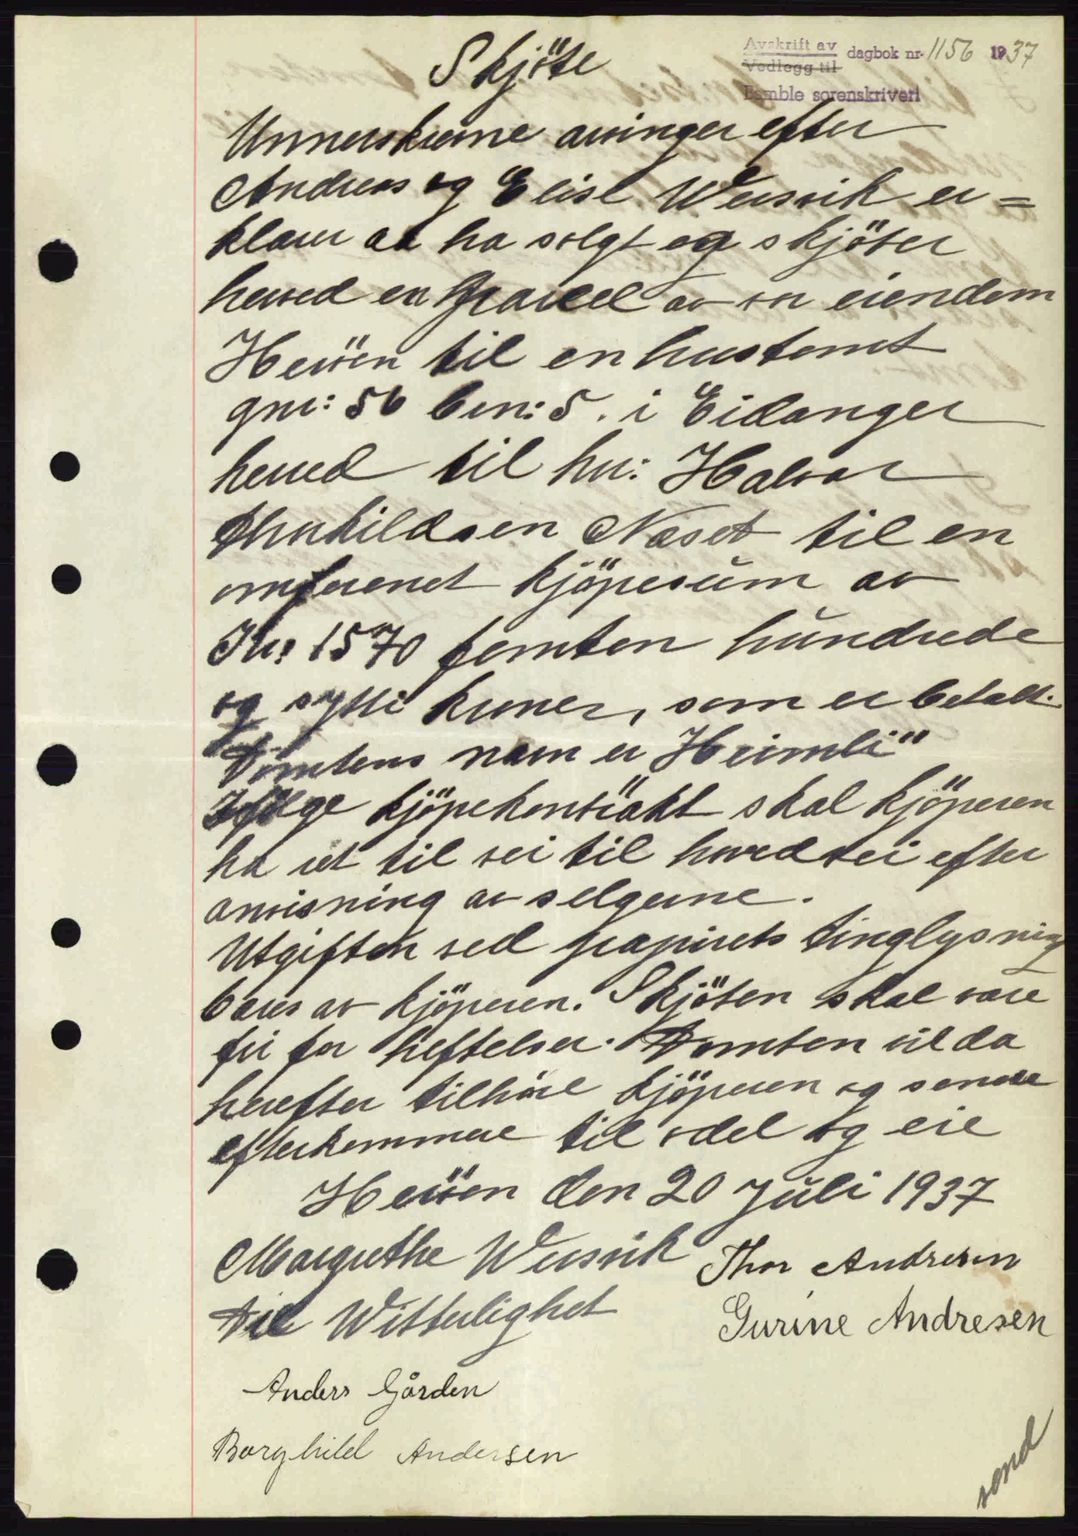 Skjöte
Avskrift av
Vedlegg til
dagbok nr. 1156 1937
Bamble sorenskriveri
Unnerskrevne arvinger efter
Andreas og Elise Wersvik er=
klærer at ha solgt og skjöter
herved en parcel av vor eiendom
Heröen til en hustomt
gnr: 56 bnr: 5. i Eidanger
herred til hr: Halvor
Thorkildsen Næset til en
omforenet kjöpesum av
Kr: 1570 femten hundrede
og sytti kroner, som er betalt.
Tomtens navn er Heimli"
Ifölge kjöpekontrakt skal kjöperen
ha ret til vei til hovedvei efter
anvisning av selgerne.
Utgiften ved papirets tinglysning
bæres av kjöperen. Skjöten skal være
fri for heftelser. Tomten vil da
herefter tilhöre kjöperen og senere
efterkommere til odel og eie
Heröen den 20 Juli 1937
Margrethe Wersvik Thor Andresen
Til Witterlighet
Gurine Andresen
Anders Gården
Borghild Andersen
send